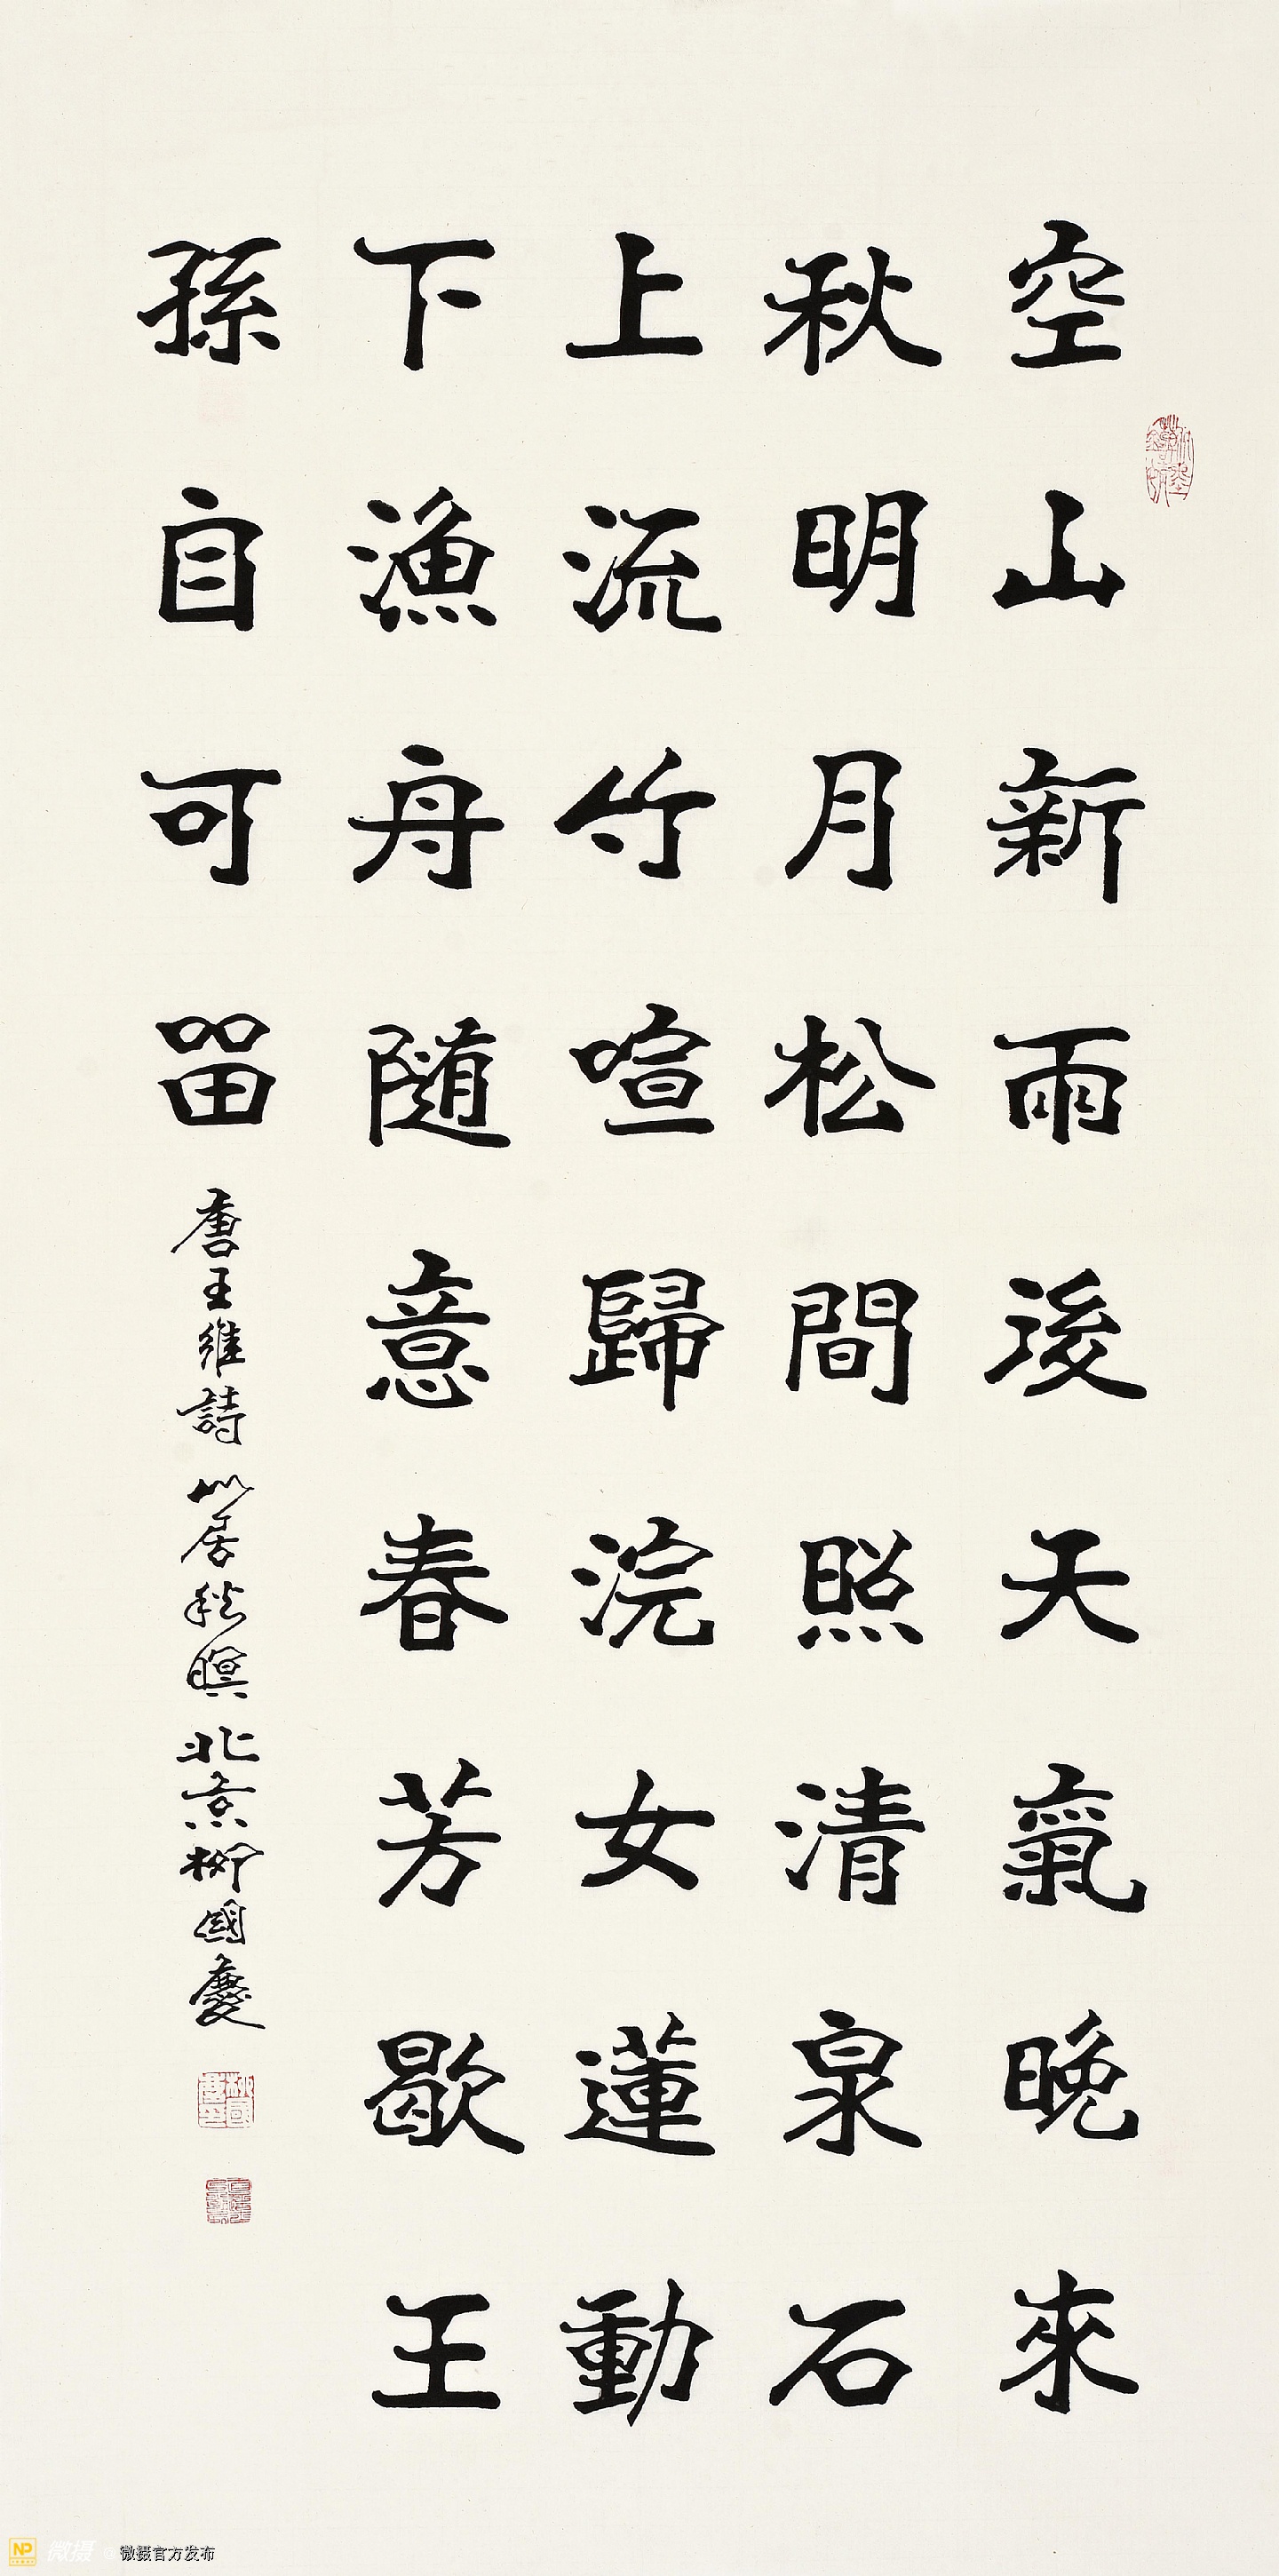 空山新雨後天氣晚來
秋明月松間照清泉石
上流竹喧歸浣女蓮動
下漁舟随意春芳歇王
孫自可留
唐王維詩山居秋暝北京柳國慶
NP 微摄 @微摄官方发布